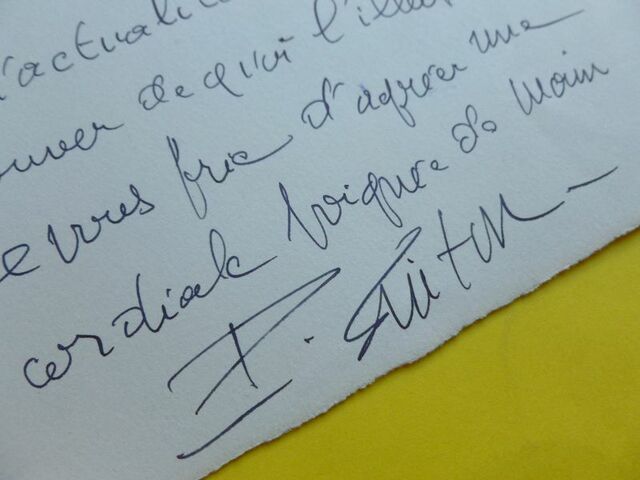 'actualit
ouver de qui l'illus
e vous prie d'agréer une
cordiale poignée de main